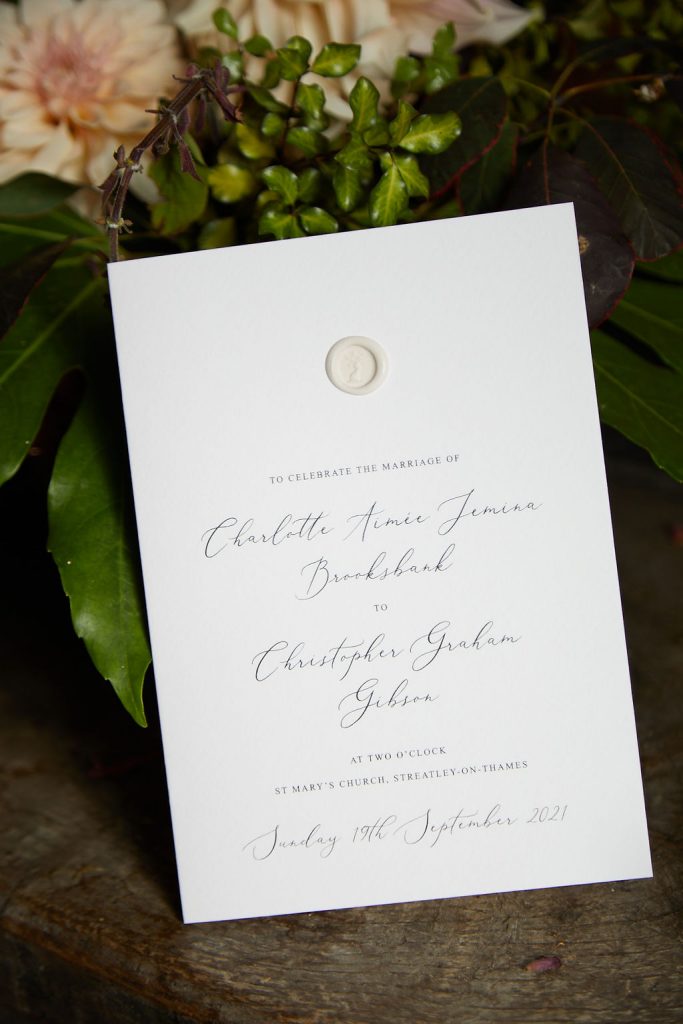 TO CELEBRATE THE MARRIAGE OF
Charlotte Aimée Jemina
Brooksbank
TO
Christopher Graham
Gibson
AT TWO O'CLOCK
ST MARY'S CHURCH, STREATLEY-ON-THAMES
Sunday 19th September 2021